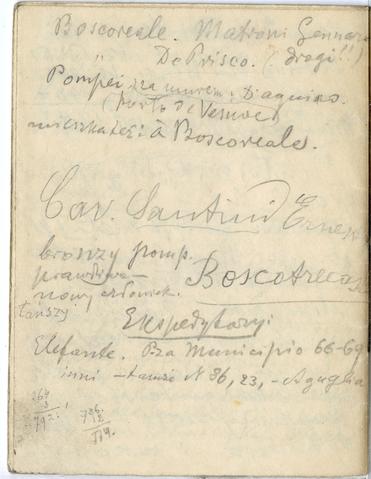 Boscoreale. Matroni Gennaro
De Prisco. (drogi!!)
Pompei za murem: D'aquino.
(porta de Vesuve)
mieszka też à Boscoreale.
Cav. Santini Ernes
bronzy pomp.
prawdziwe —
nowy człowiek.
Boscotrecas
tańszy
Ekspedytorzy:
Elefante. Pza Municipio 66-69
inni – tamże N 36, 23, – Aguglia
264
3
792
726.
12